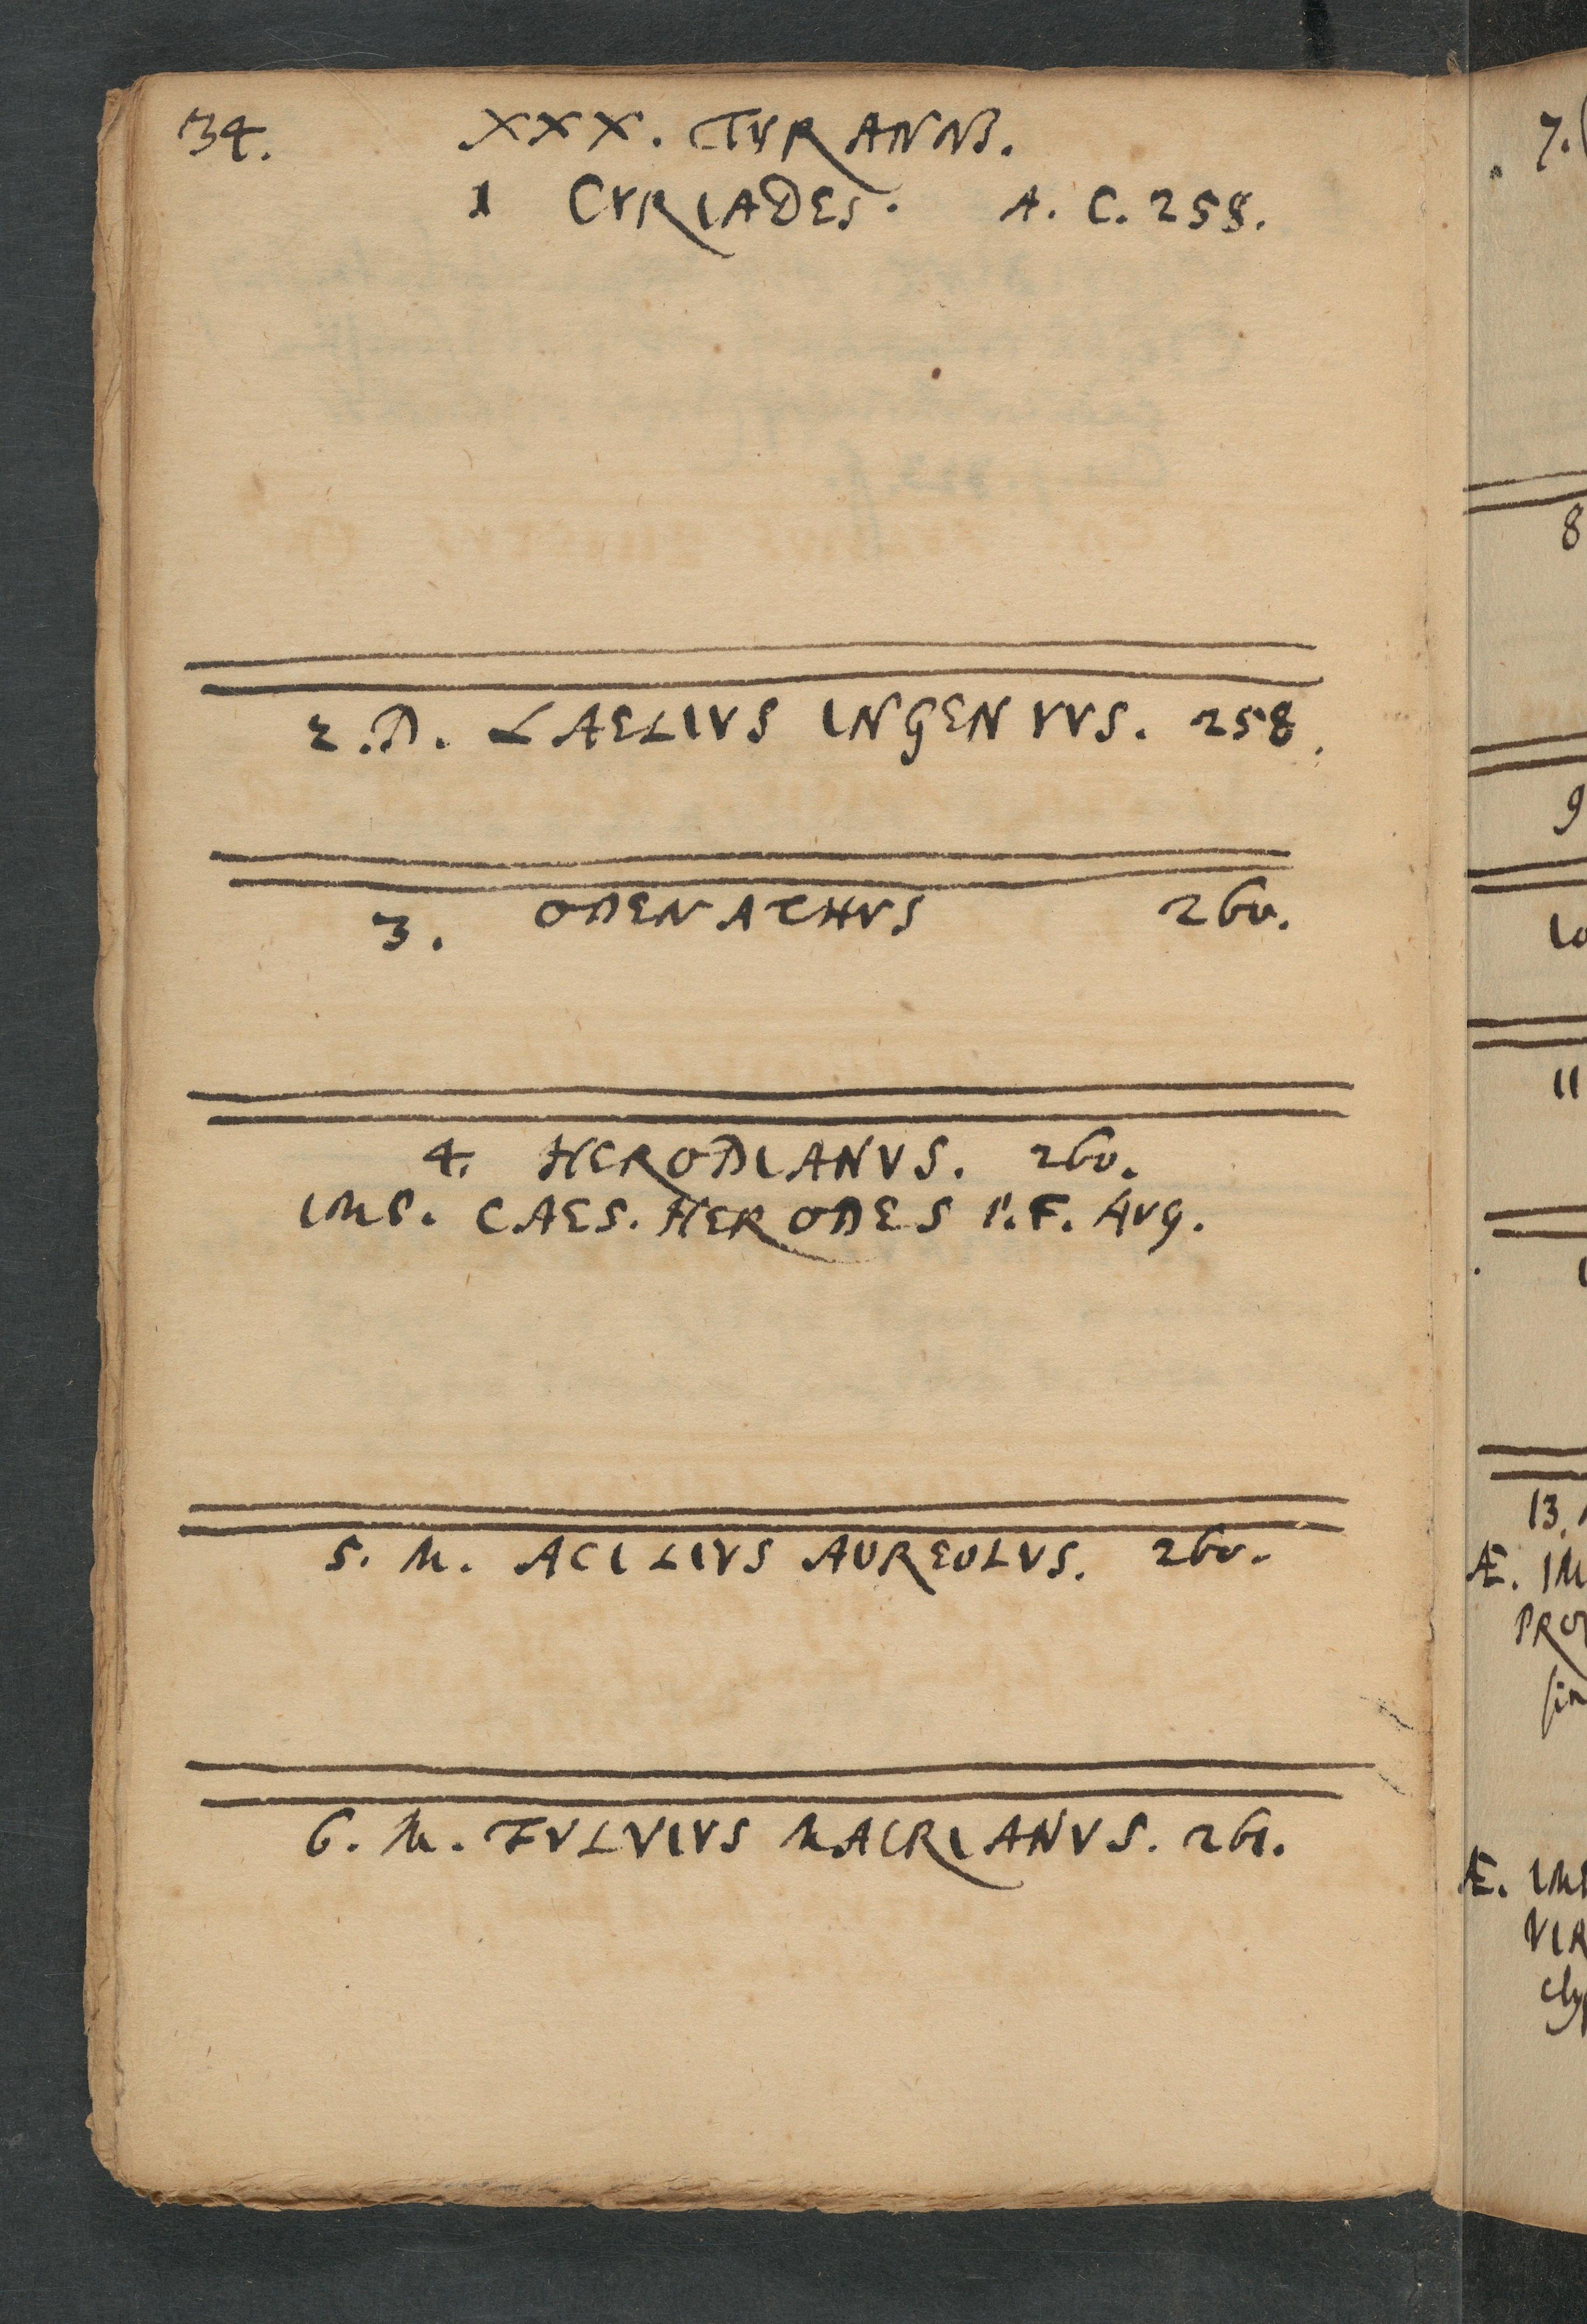 34. XXX. TYRANNI.
1 CYRIADES. A. C. 258.
2. D. LAELIVS INGENVVS. 258.
3. ODENATHVS 260.
4. HERODIANVS. 260.
IMP. CAES. HERODES P.F. AVG.
5. M. ACILIVS AUREOLVS. 260.
6. M. FVLVIVS MACRIANVS. 261.
7.
8
9
10
11
13.
Æ. IM
PRO
Æ. IMP
VIR